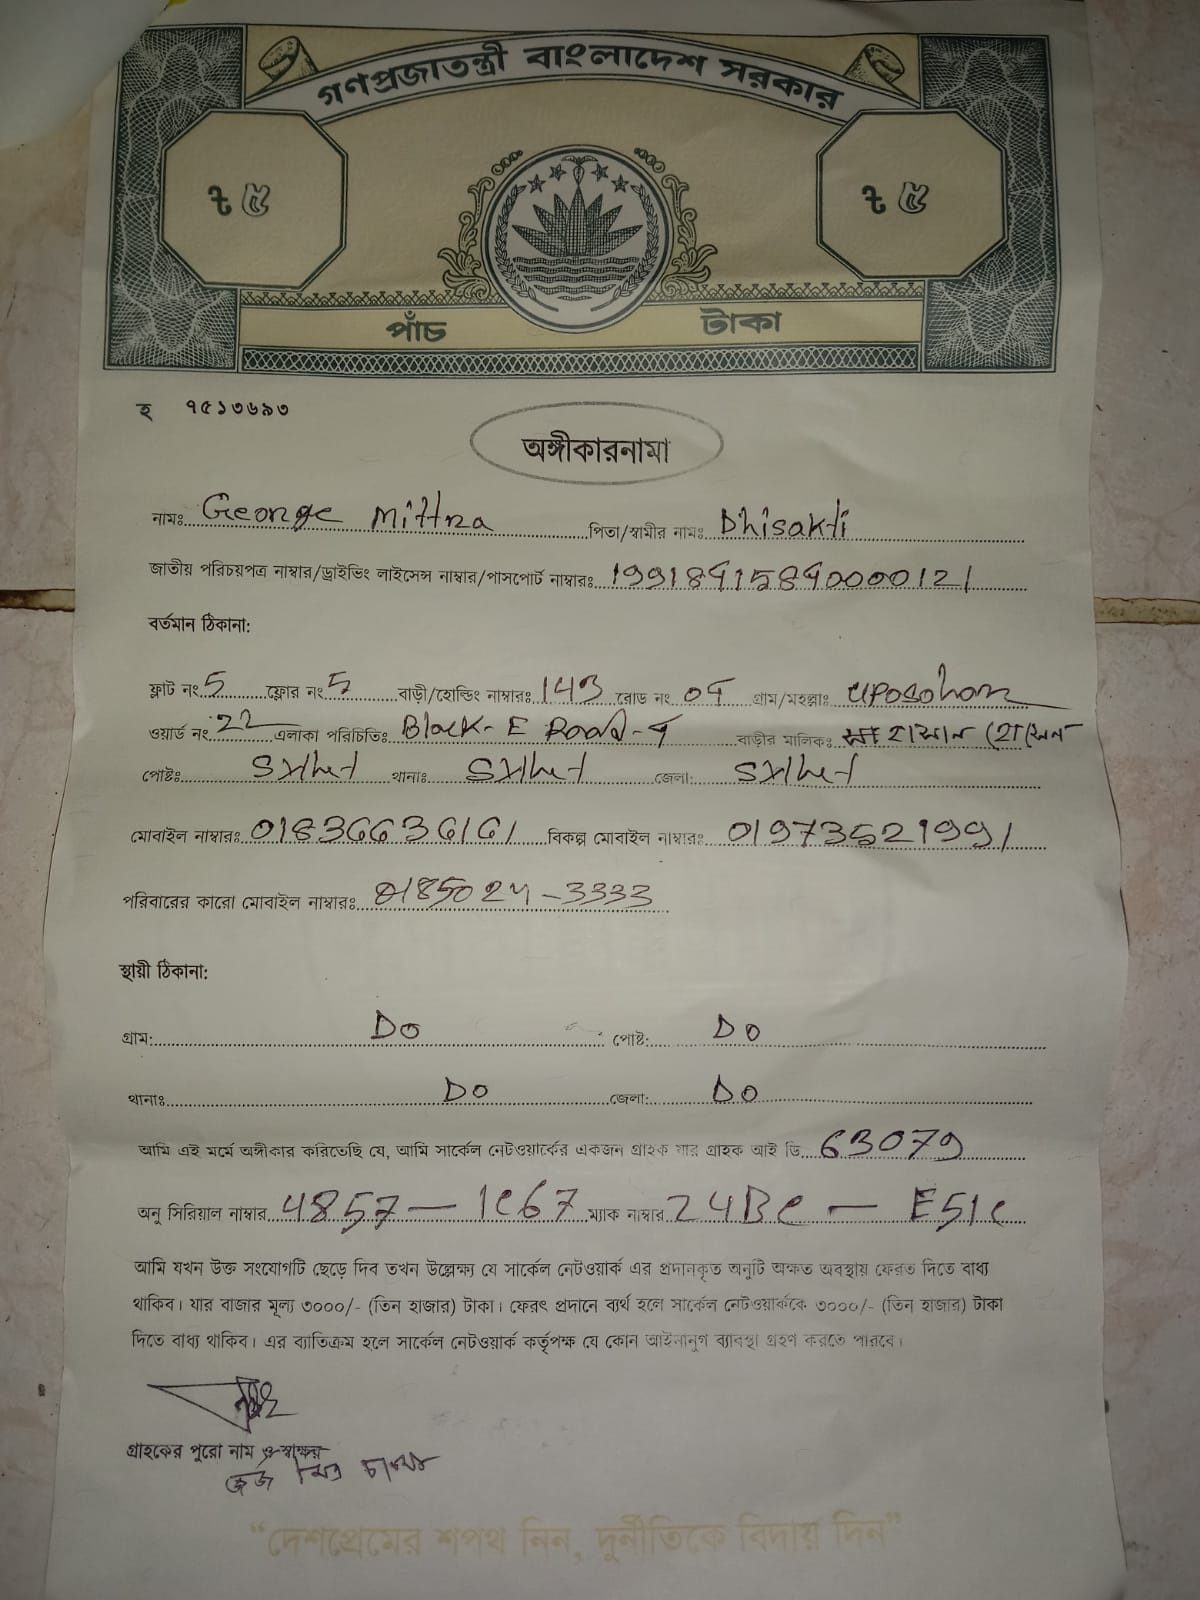 গণপ্রজাতন্ত্রী বাংলাদেশ সরকার
৳ ৫ ৳ ৫
পাঁচ টাকা
হ ৭৫১৩৬৯৩
অঙ্গীকারনামা
নামঃ George Mittra পিতা/স্বামীর নামঃ Dhisakti
জাতীয় পরিচয়পত্র নাম্বার/ড্রাইভিং লাইসেন্স নাম্বার/পাসপোর্ট নাম্বারঃ
বর্তমান ঠিকানা:
ফ্লাট নং 5 ফ্লোর নং 5 বাড়ী/হোল্ডিং নাম্বারঃ 143 রোড নং 04 গ্রাম/মহল্লাঃ
ওয়ার্ড নং 22 এলাকা পরিচিতিঃ Block-E Road-4 বাড়ীর মালিকঃ হাসান হোসেন
পোষ্টঃ Sylhet থানাঃ Sylhet জেলা: Sylhet
মোবাইল নাম্বারঃ 01836636161 বিকল্প মোবাইল নাম্বারঃ 01973521991
পরিবারের কারো মোবাইল নাম্বারঃ 0185024-3333
স্থায়ী ঠিকানা:
গ্রাম: Do পোষ্ট: Do
থানাঃ Do জেলা: Do
আমি এই মর্মে অঙ্গীকার করিতেছি যে, আমি সার্কেল নেটওয়ার্কের একজন গ্রাহক যার গ্রাহক আই ডি 63079
অনু সিরিয়াল নাম্বার 4857 — 1C67 ম্যাক নাম্বার 24BC — E51C
আমি যখন উক্ত সংযোগটি ছেড়ে দিব তখন উল্লেক্ষ্য যে সার্কেল নেটওয়ার্ক এর প্রদানকৃত অনুটি অক্ষত অবস্থায় ফেরত দিতে বাধ্য
থাকিব। যার বাজার মূল্য ৩০০০/- (তিন হাজার) টাকা। ফেরৎ প্রদানে ব্যর্থ হলে সার্কেল নেটওয়ার্ককে ৩০০০/- (তিন হাজার) টাকা
দিতে বাধ্য থাকিব। এর ব্যাতিক্রম হলে সার্কেল নেটওয়ার্ক কর্তৃপক্ষ যে কোন আইনানুগ ব্যাবস্থা গ্রহণ করতে পারবে।
গ্রাহকের পুরো নাম ও স্বাক্ষর
জর্জ মিত্র
“দেশপ্রেমের শপথ নিন, দুর্নীতিকে বিদায় দিন”